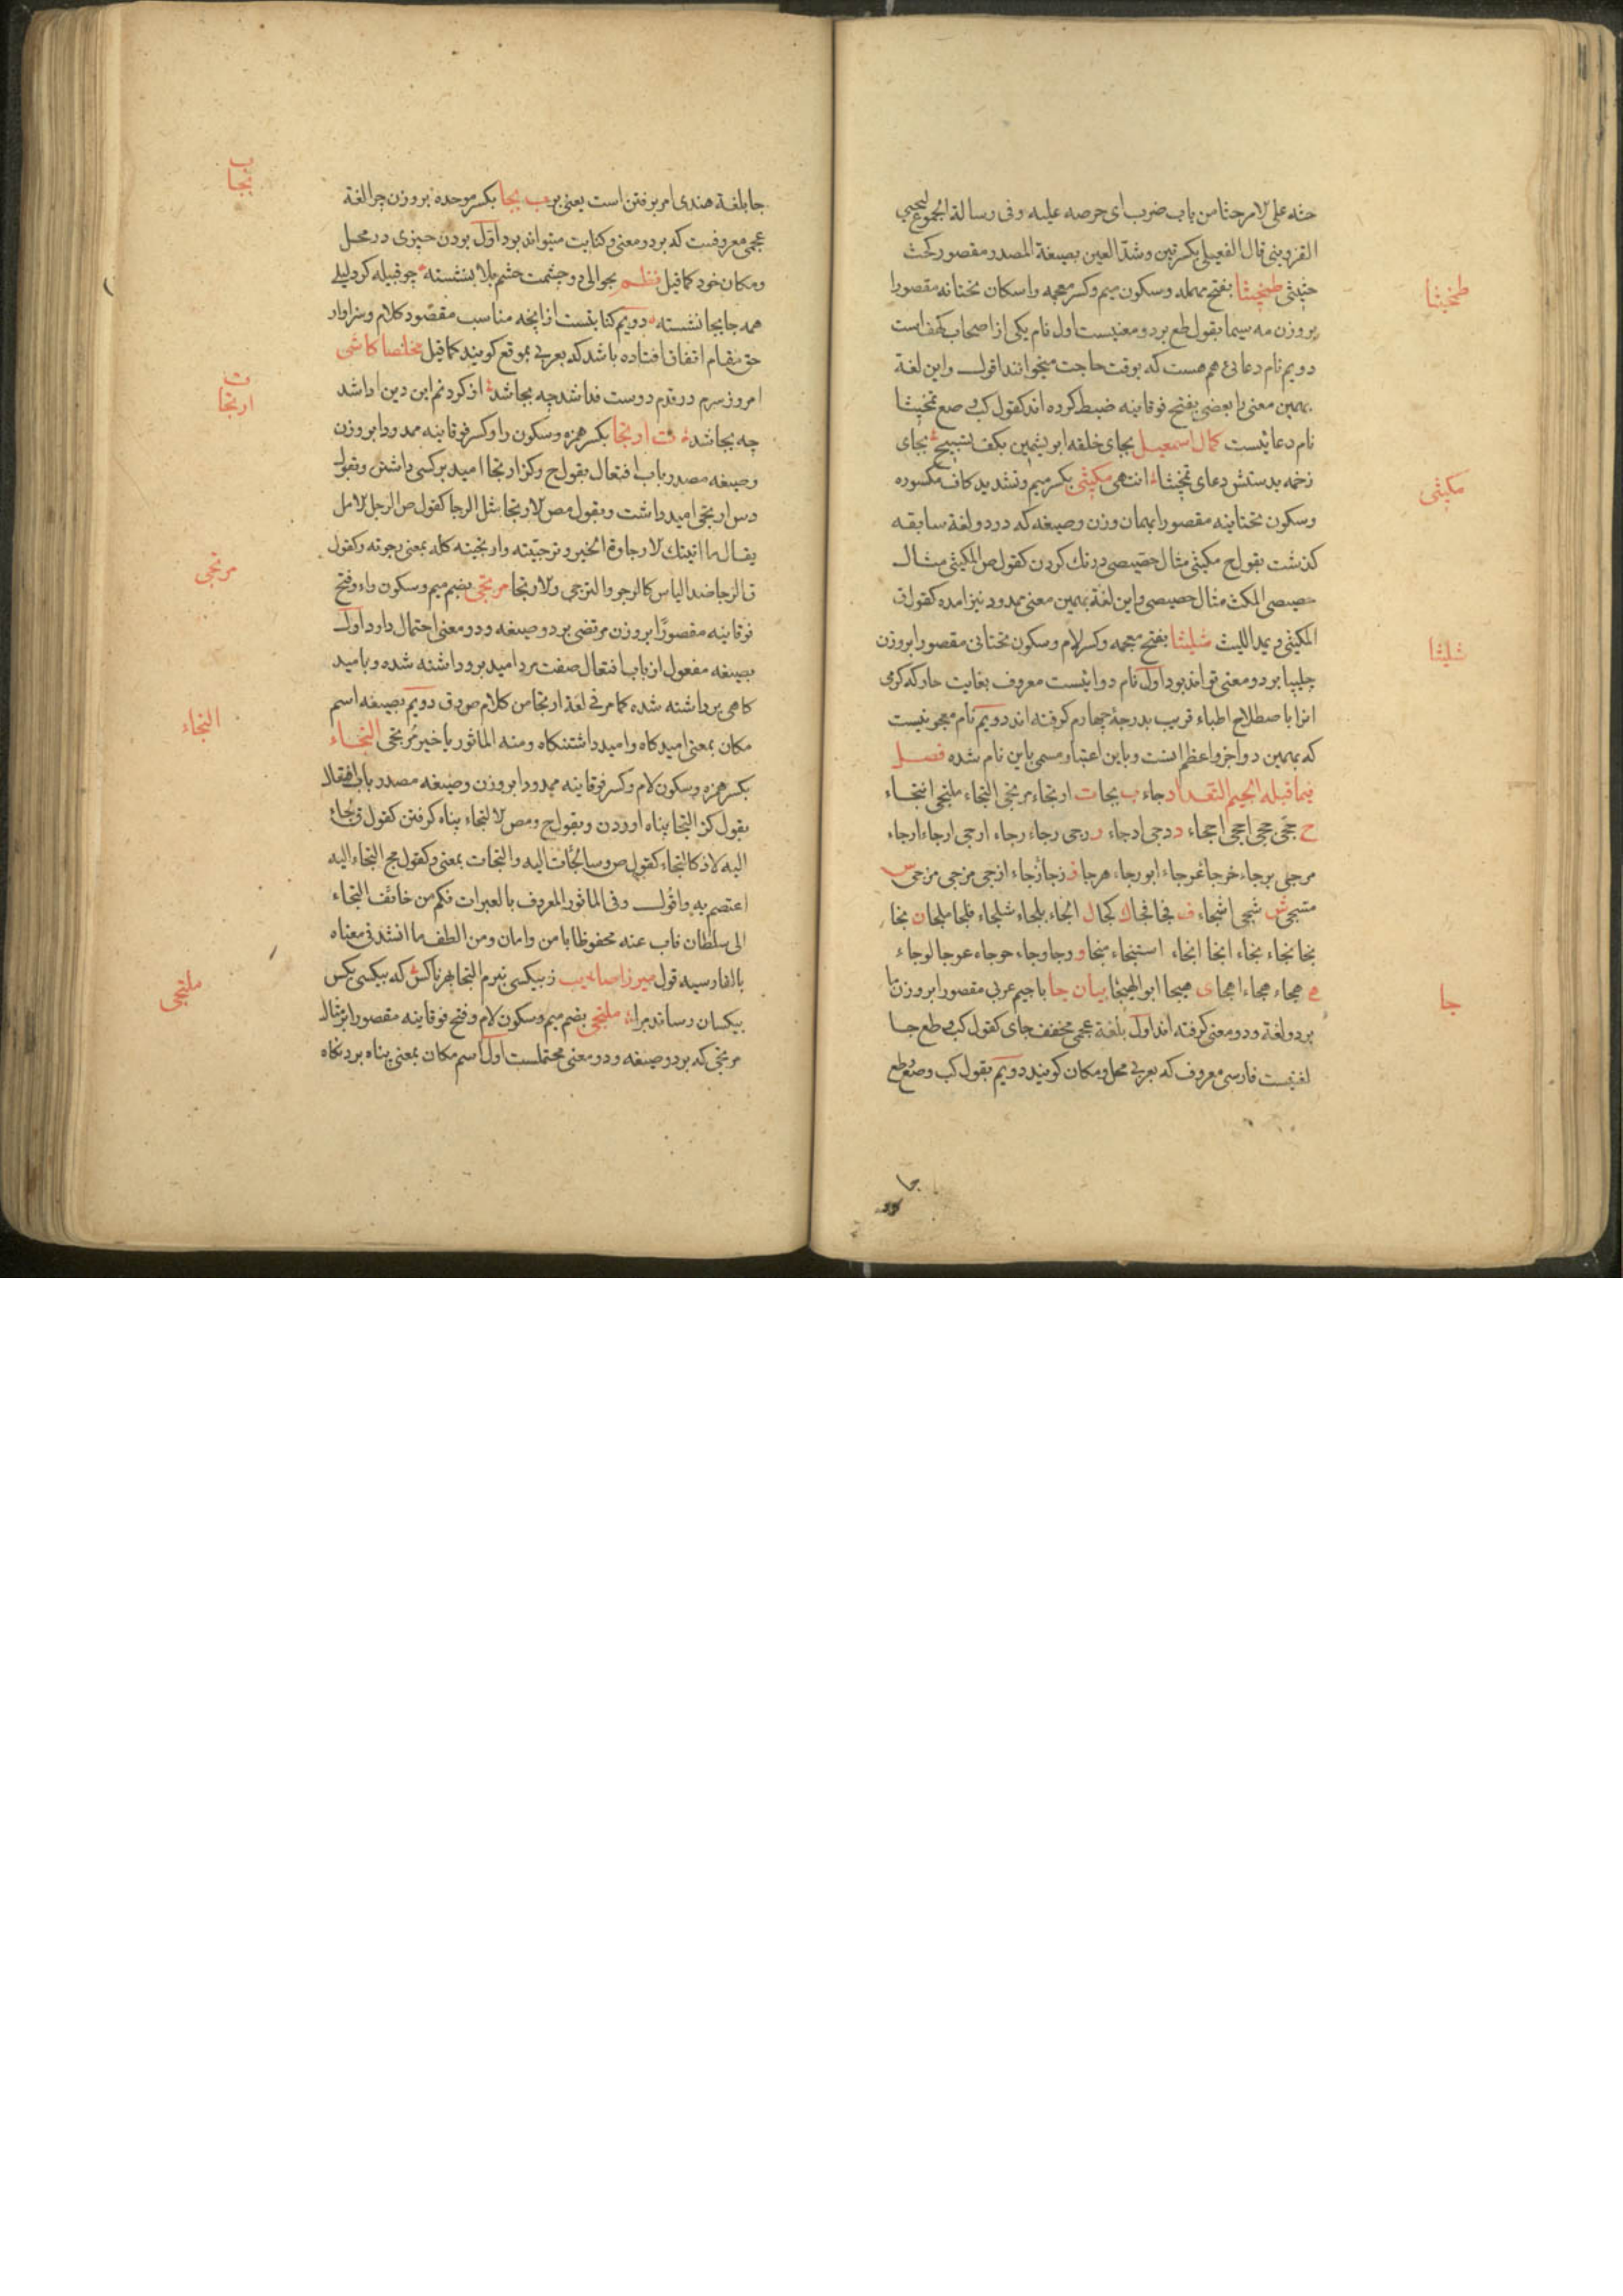 حثه علی الامر حثا من باب ضرب ای حرصه علیه وفی رسالة المجموع لیحیی
القزوینی قال الفعیلی بکسرتین وشد العین بصیغة المصدر مقصور کحث
حثیثی طمخیثا بفتح مهمله وسکون میم وکسر معجمه واسکان تحتانه مقصورا
بروزن مه سیما بقول طع بردو معنیست اول نام یکی از اصحاب کهف است
دویم نام دعائی هم هست که بوقت حاجت میخوانند اقول واین لغة
بهمین معنی را بعضی بفتح فوقانیه ضبط کرده اند کقول کب وصع تمخیثا
نام دعائیست کمال اسمعیل بجای خلقه ابریشمین بکف تسبیح بجای
زخمه بدستش دعای تمخیثا انتهی مکیثی بکسر میم وتشدید کاف مکسوره
وسکون تحتانیه مقصورا بهمان وزن وصیغه که در دو لغة سابقه
کذشت بقول ح مکیثی مثال حصیصی درنک کردن کقول ص المکیثی مثال
حصیصی المکث مثال حصیصی واین لغة بهمین معنی ممدود نیز امده کقول ق
المکیثی ویمد اللبث شلیثا بفتح معجمه وکسر لام وسکون تحتانی مقصورا بروزن
چلیپا بردو معنی تواند بود اول نام دوائیست معروف بغایت حار که کرمی
انرا باصطلاح اطباء قریب بدرجه چهارم کرفته اند دویم نام معجونیست
که بهمین دوا جزو اعظم انست وباین اعتبار مسمی باین نام شده فصل
فیما قبله الجیم التقداد جاء ب بجا ت ارتجاء مرتجی التجاء ملتجی انتجاء
ح حجی حجی احجی احجاء د دجی ادجاء ر رجی رجاء رجاء ارجی ارجاء ارجاء
مرجی برجاء خرجا غرجاء ابورجاء هرجا ز زجا زجاء ازجی مزجی مزجی س
متسجی ش شجی اشجاء ف فجا فجا ک کجا ل الجاء بلجاء شلجاء فلجا ملجا ن نجا
نجا نجاء نجاء انجا انجاء استنجاء منجا و وجا وجاء حوجاء عوجا لوجاء
ه هجاء هجاء اهجا ی هیجا ابو الهیجا بیان جا با جیم عربی مقصورا بروزن ما
بردو لغة ودو معنی کرفته اند اول بلغة عجمی مخفف جای کقول کب وطع جا
لغتیست فارسی معروف که بعربی محل ومکان کویند دویم بقول کب وصع وطع
جا
طمخیثا
مکیثی
شلیثا
جا
جا بلغة هندی امر بر رفتن است یعنی برو ب بجا بکسر موحده بروزن چرا لغة
عجمی معروفست که بردو معنی وکنایت میتواند بود اول بودن چیزی در محل
ومکان خود کما قیل نظم بحوالی دو چشمت حشم بلا نشسته چو قبیله کرد لیلی
همه جا بجا نشسته دویم کنایتست از انچه مناسب مقصود کلام وسزاوار
حق مقام اتفاق افتاده باشد که بعربی بموقع کویند کما قیل مخلصا کاشی
امروز سرم در قدم دوست فدا شد چه بجا شد از کردنم این دین ادا شد
چه بجا شد ت ارتجا بکسر همزه وسکون را وکسر فوقانیه ممدودا بروزن
وصیغه مصدر باب افتعال بقول ح وکز ارتجا امید بر کسی داشتن وبقول
دس ارتجی امید داشت وبقول مص الارتجا مثل الرجا کقول ص الرجل الامل
یقال ما اتیتک الا رجاوة الخیر وترجیته وارتجیته کله بمعنی رجوته وکقول
ق الرجا ضد الیاس کالرجو والترجی والارتجا مرتجی بضم میم وسکون راء وفتح
فوقانیه مقصورا بروزن مرتضی بردو صیغه ودو معنی احتمال دارد اول
بصیغه مفعول از باب افتعال صفت مرد امید برو داشته شده وبامید
کاهی برداشته شده کما مر فی لغة ارتجا من کلام ص وق دویم بصیغه اسم
مکان بمعنی امیدکاه وامید داشتنکاه ومنه الماثور یا خیر مرتجی التجاء
بکسر همزه وسکون لام وکسر فوقانیه ممدودا بروزن وصیغه مصدر باب افتعال
بقول کز التجا پناه اوردن وبقول ح ومص الالتجاء پناه کرفتن کقول ق لجاء
الیه لاذ کالتجاء کقول ص وسا لجات الیه والتجات بمعنی وکقول مج التجاء الیه
اعتصم به واقول وفی الماثور المعروف بالعبرات فکم من خائف التجاء
الی سلطان فاب عنه محفوظا بامن وامان ومن الطف ما انشد فی معناه
بالفارسیه قول میرزا صائب ز بیکسی نبرم التجا بهر ناکس که بیکسی بکس
بیکسان رساند مرا ملتجی بضم میم وسکون لام وفتح فوقانیه مقصورا بمثال
مرتجی که بردو صیغه ودو معنی محتملست اول اسم مکان بمعنی پناه بردنکاه
ب
بجا
ت
ارتجا
مرتجی
التجاء
ملتجی